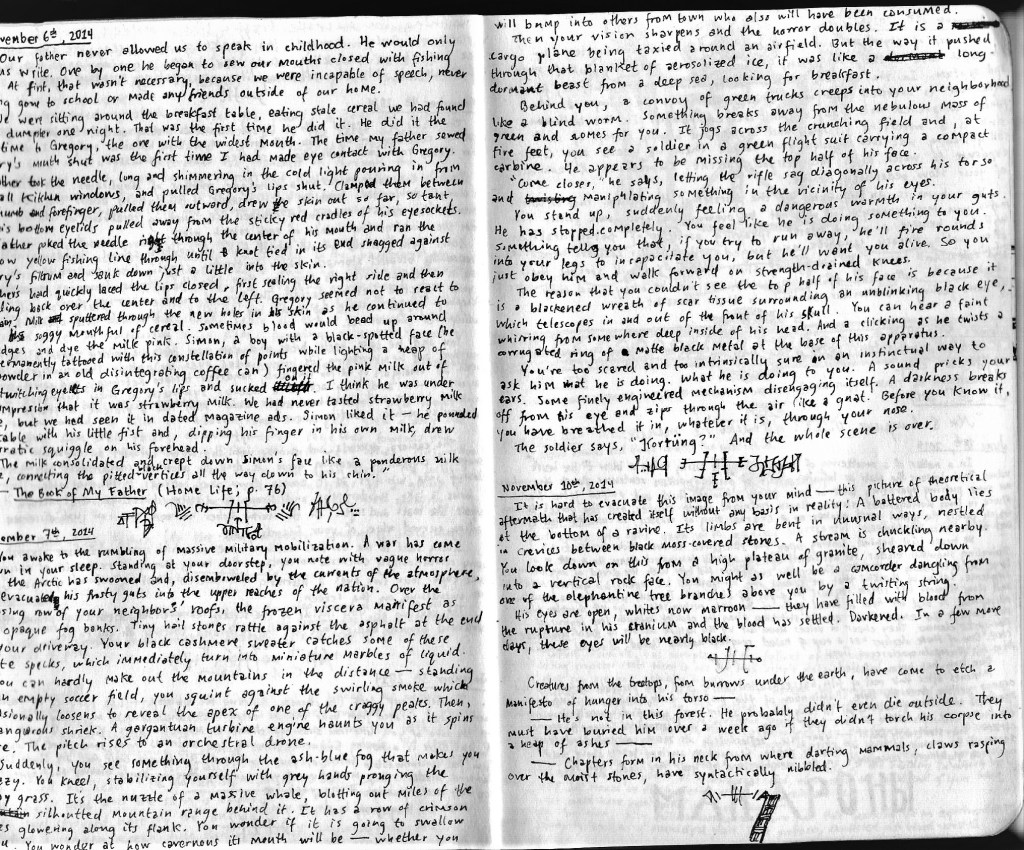 vember 6th, 2014
Our father never allowed us to speak in childhood. He would only
us write. One by one he began to sew our mouths closed with fishing
At first, that wasn't necessary, because we were incapable of speech, never
ng gone to school or made any friends outside of our home.
We were sitting around the breakfast table, eating stale cereal we had found
dumpster one night. That was the first time he did it. He did it the
time to Gregory, the one with the widest mouth. The time my father sewed
ry's mouth shut was the first time I had made eye contact with Gregory.
ther took the needle, long and shimmering in the cold light pouring in from
all kitchen windows, and pulled Gregory's lips shut. Clamped them between
humb and forefinger, pulled them outward, drew the skin out so far, so taut,
his bottom eyelids pulled away from the sticky red cradles of his eyesockets.
ather poked the needle right through the center of his mouth and ran the
ow yellow fishing line through until a knot tied in its end snagged against
ry's filtrum and sank down just a little into the skin.
hers had quickly laced the lips closed, first sealing the right side and then
ling back over the center and to the left. Gregory seemed not to react to
Milk sputtered through the new holes in his skin as he continued to
his soggy mouthful of cereal. Sometimes blood would bead up around
dges and dye the milk pink. Simon, a boy with a black-spotted face (he
ermanently tattooed with this constellation of points while lighting a heap of
owder in an old disintegrating coffee can) fingered the pink milk out of
twitching eyelets in Gregory's lips and sucked it. I think he was under
mpression that it was strawberry milk. We had never tasted strawberry milk
e, but we had seen it in dated magazine ads. Simon liked it — he pounded
table with his little fist and, dipping his finger in his own milk, drew
rratic squiggle on his forehead.
The milk consolidated and crept down Simon's face like a ponderous milk
, connecting the pitted vertices all the way down to his chin."
— The Book of My Father (Home Life, p. 76)
ember 7th, 2014
You awoke to the rumbling of massive military mobilization. A war has come
wn in your sleep. Standing at your doorstep, you note with vague horror
the Arctic has swooned and, disemboweled by the currents of the atmosphere,
evacuated his frosty guts into the upper reaches of the nation. Over the
sing row of your neighbors' roofs, the frozen viscera manifest as
opaque fog banks. Tiny hail stones rattle against the asphalt at the end
your driveway. Your black cashmere sweater catches some of these
te specks, which immediately turn into miniature marbles of liquid.
ou can hardly make out the mountains in the distance — standing
n empty soccer field, you squint against the swirling smoke which
asionally loosens to reveal the apex of one of the craggy peaks. Then,
anguorous shriek. A gargantuan turbine engine haunts you as it spins
re. The pitch rises to an orchestral drone.
Suddenly, you see something through the ash-blue fog that makes you
zzy. You kneel, stabilizing yourself with grey hands pronging the
y grass. It's the nuzzle of a massive whale, blotting out miles of the
silhouetted mountain range behind it. It has a row of crimson
es glowering along its flank. You wonder if it is going to swallow
u. You wonder at how cavernous its mouth will be — whether you
will bump into others from town who also will have been consumed.
Then your vision sharpens and the horror doubles. It is a
cargo plane being taxied around an airfield. But the way it pushed
through that blanket of aerosolized ice, it was like a long-
dormant beast from a deep sea, looking for breakfast.
Behind you, a convoy of green trucks creeps into your neighborhood
like a blind worm. Something breaks away from the nebulous mass of
green and comes for you. It jogs across the crunching field and, at
five feet, you see a soldier in a green flight suit carrying a compact
carbine. He appears to be missing the top half of his face.
"Come closer," he says, letting the rifle sag diagonally across his torso
and manipulating something in the vicinity of his eyes.
You stand up, suddenly feeling a dangerous warmth in your guts.
He has stopped completely. You feel like he is doing something to you.
Something tells you that, if you try to run away, he'll fire rounds
into your legs to incapacitate you, but he'll want you alive. So you
just obey him and walk forward on strength-drained knees.
The reason that you couldn't see the top half of his face is because it
is a blackened wreath of scar tissue surrounding an unblinking black eye,
which telescopes in and out of the front of his skull. You can hear a faint
whirring from somewhere deep inside of his head. And a clicking as he twists a
corrugated ring of matte black metal at the base of this apparatus.
You're too scared and too intrinsically sure on an instinctual way to
ask him what he is doing. What he is doing to you. A sound pricks your
ears. Some finely engineered mechanism disengaging itself. A darkness breaks
off from his eye and zips through the air like a gnat. Before you know it,
you have breathed it in, whatever it is, through your nose.
The soldier says, "Kortüng?" And the whole scene is over.
November 10th, 2014
It is hard to evacuate this image from your mind — this picture of theoretical
aftermath that has created itself without any basis in reality: A battered body lies
at the bottom of a ravine. Its limbs are bent in unusual ways, nestled
in crevices between black moss-covered stones. A stream is chuckling nearby.
You look down on this from a high plateau of granite, sheared down
into a vertical rock face. You might as well be a camcorder dangling from
one of the elephantine tree branches above you by a twisting string.
His eyes are open, whites now marroon — they have filled with blood from
the rupture in his cranium and the blood has settled. Darkened. In a few more
days, these eyes will be nearly black.
Creatures from the treetops, from burrows under the earth, have come to etch a
manifesto of hunger into his torso —
— He's not in this forest. He probably didn't even die outside. They
must have buried him over a week ago if they didn't torch his corpse into
a heap of ashes —
— Chapters form in his neck from where darting mammals, claws rasping
over the moist stones, have syntactically nibbled.